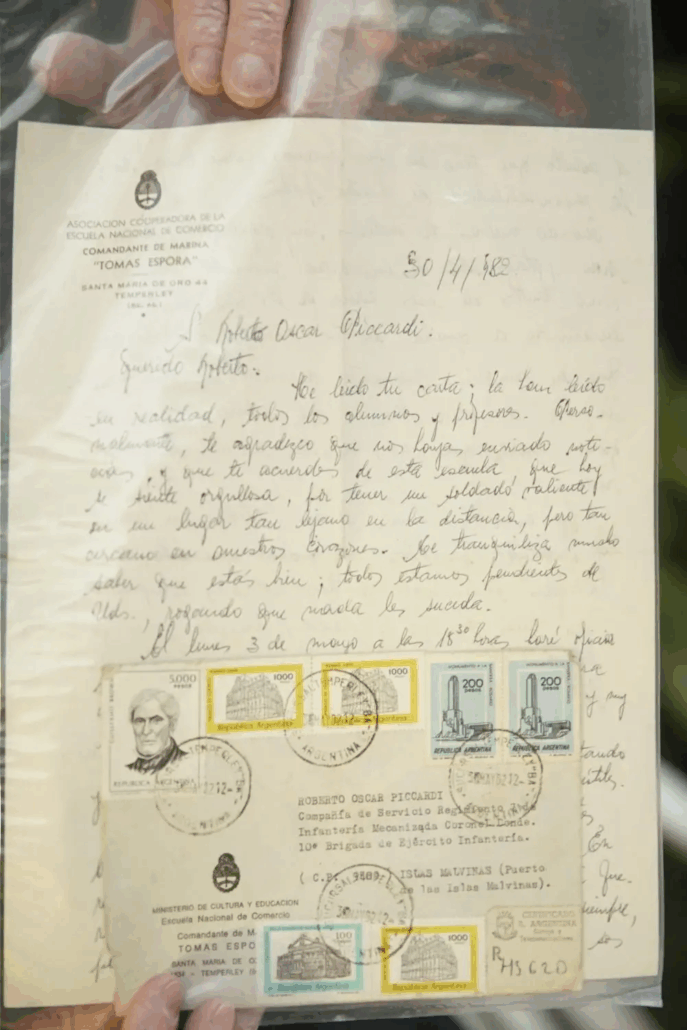 ASOCIACION COOPERADORA DE LA
ESCUELA NACIONAL DE COMERCIO
COMANDANTE DE MARINA
"TOMAS ESPORA"
SANTA MARIA DE ORO 44
TEMPERLEY
(Bs. As.)
30/4/982
Sr Roberto Oscar Piccardi.
Querido Roberto:
He leído tu carta; la han leído
en realidad, todos los alumnos y profesores. Perso-
nalmente, te agradezco que nos hayas enviado noti-
cias, y que te acuerdes de esta escuela que hoy
se siente orgullosa, por tener un soldado valiente
en un lugar tan lejano en la distancia, pero tan
cercano en nuestros corazones. Me tranquiliza mucho
saber que estás bien; todos estamos pendientes de
Uds., rogando que nada les suceda.
El lunes 3 de mayo a las 18 30 horas haré oficiar
y muy
En
sos
5.000
PESOS
REPUBLICA ARGENTINA
1000
República Argentina
1000
República Argentina
200
PESOS
REPUBLICA ARGENTINA
200
PESOS
REPUBLICA ARGENTINA
TEMPERLEY
ARGENTINA
ROBERTO OSCAR PICCARDI
Compañía de Servicio Regimiento
Infantería Mecanizada Coronel Conde.
10ª Brigada de Ejército Infantería.
(C.P. 9409) ISLAS MALVINAS (Puerto
de las Islas Malvinas).
MINISTERIO DE CULTURA Y EDUCACION
Escuela Nacional de Comercio
Comandante de
TOMAS ESPO
SANTA MARIA DE
TEMPERLEY
100
PESOS
República Argentina
1000
República Argentina
CERTIFICADO
R. ARGENTINA
Correos y
Telecomunicaciones
R